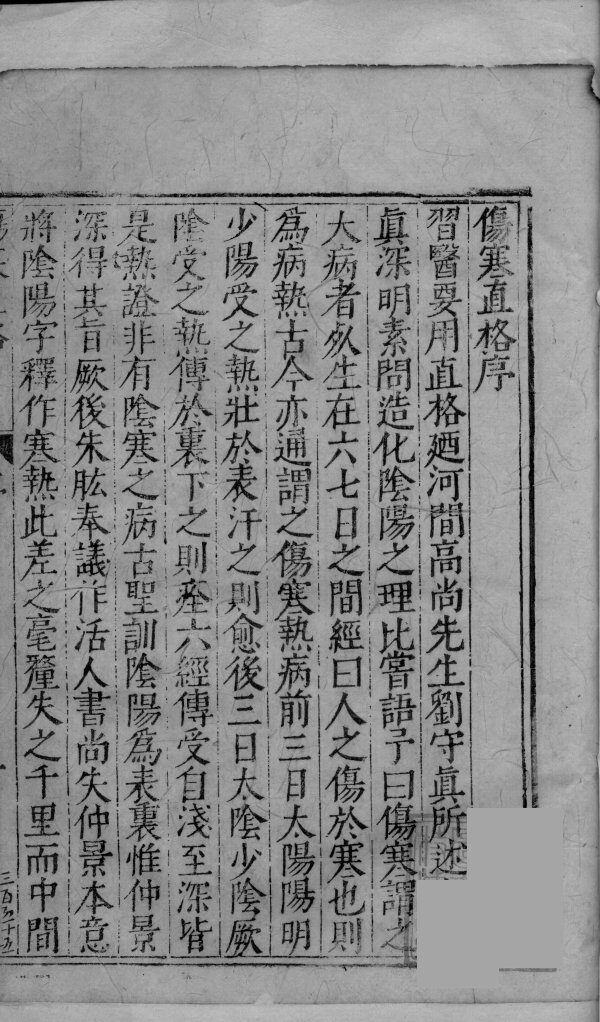 傷寒直格序
習醫要用直格廼河間高尚先生劉守眞所述
眞深明素問造化陰陽之理比嘗語予曰傷寒謂之
大病者死生在六七日之間經曰人之傷於寒也則
為病熱古今亦通謂之傷寒熱病前三日太陽陽明
少陽受之熱壯於表汗之則愈後三日太陰少陰厥
陰受之熱傳於裏下之則痊六經傳受自淺至深皆
是熱證非有陰寒之病古聖訓陰陽為表裏惟仲景
深得其旨厥後朱肱奉議作活人書尚失仲景本意
將陰陽字釋作寒熱此差之毫釐失之千里而中間
三百五十五